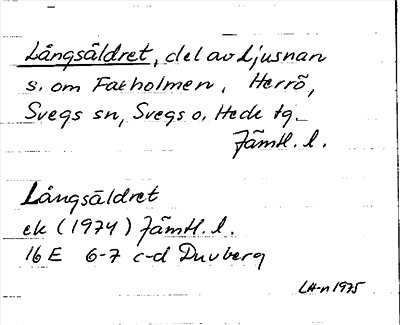 Långsäldret, del av Ljusnan
s. om Fatholmen, Herrö,
Svegs sn, Svegs o. Hede tg
Jämtl. l.
Långsäldret
ek (1974) Jämtl. l.
16 E 6-7 c-d Duvberg
LH-n 1975